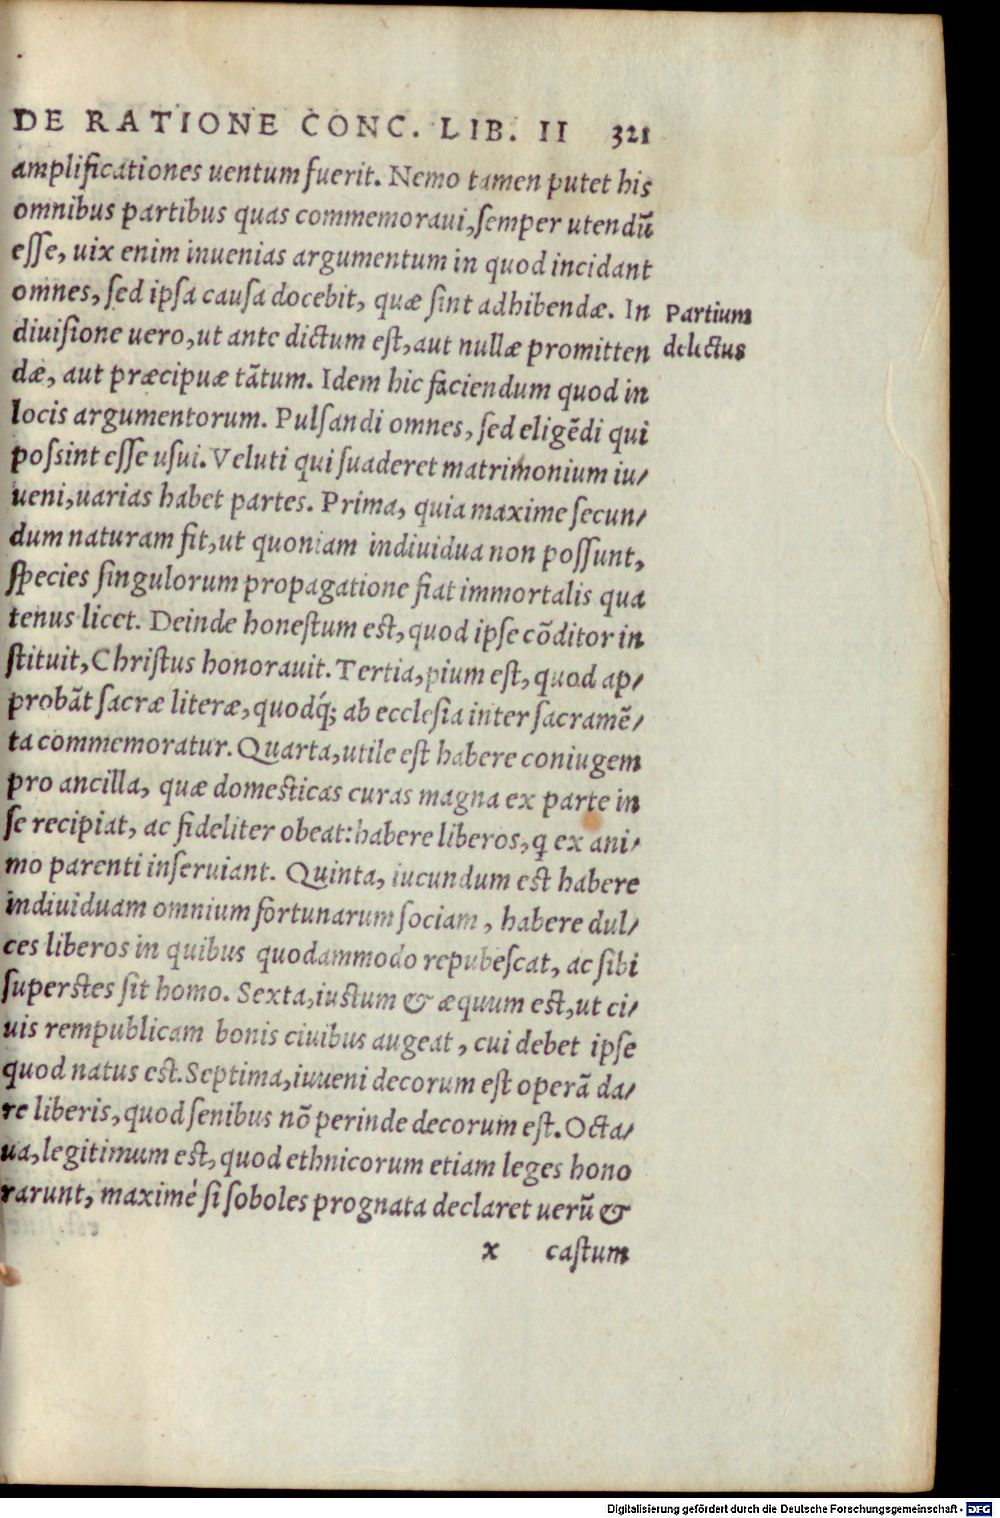 DE RATIONE CONC. LIB. II 321
amplificationes uentum fuerit. Nemo tamen putet his
omnibus partibus quas commemoraui, semper utendū
esse, uix enim inuenias argumentum in quod incidant
omnes, sed ipsa causa docebit, quæ sint adhibendæ. In
Partium
diuisione uero, ut ante dictum est, aut nullæ promitten
delectus
dæ, aut præcipuæ tātum. Idem hic faciendum quod in
locis argumentorum. Pulsandi omnes, sed eligēdi qui
possint esse usui. Veluti qui suaderet matrimonium iu/
ueni, uarias habet partes. Prima, quia maxime secun/
dum naturam fit, ut quoniam indiuidua non possunt,
species singulorum propagatione fiat immortalis qua
tenus licet. Deinde honestum est, quod ipse cōditor in
stituit, Christus honorauit. Tertia, pium est, quod ap/
probāt sacræ literæ, quodq́; ab ecclesia inter sacramē/
ta commemoratur. Quarta, utile est habere coniugem
pro ancilla, quæ domesticas curas magna ex parte in
se recipiat, ac fideliter obeat: habere liberos, q ex ani/
mo parenti inseruiant. Quinta, iucundum est habere
indiuiduam omnium fortunarum sociam, habere dul/
ces liberos in quibus quodammodo repubescat, ac sibi
superstes sit homo. Sexta, iustum & æquum est, ut ci/
uis rempublicam bonis ciuibus augeat, cui debet ipse
quod natus est. Septima, iuueni decorum est operā da/
re liberis, quod senibus nō perinde decorum est. Octa/
ua, legitimum est, quod ethnicorum etiam leges hono
rarunt, maximé si soboles prognata declaret uerū &
x castum
Digitalisierung gefördert durch die Deutsche Forschungsgemeinschaft - DFG